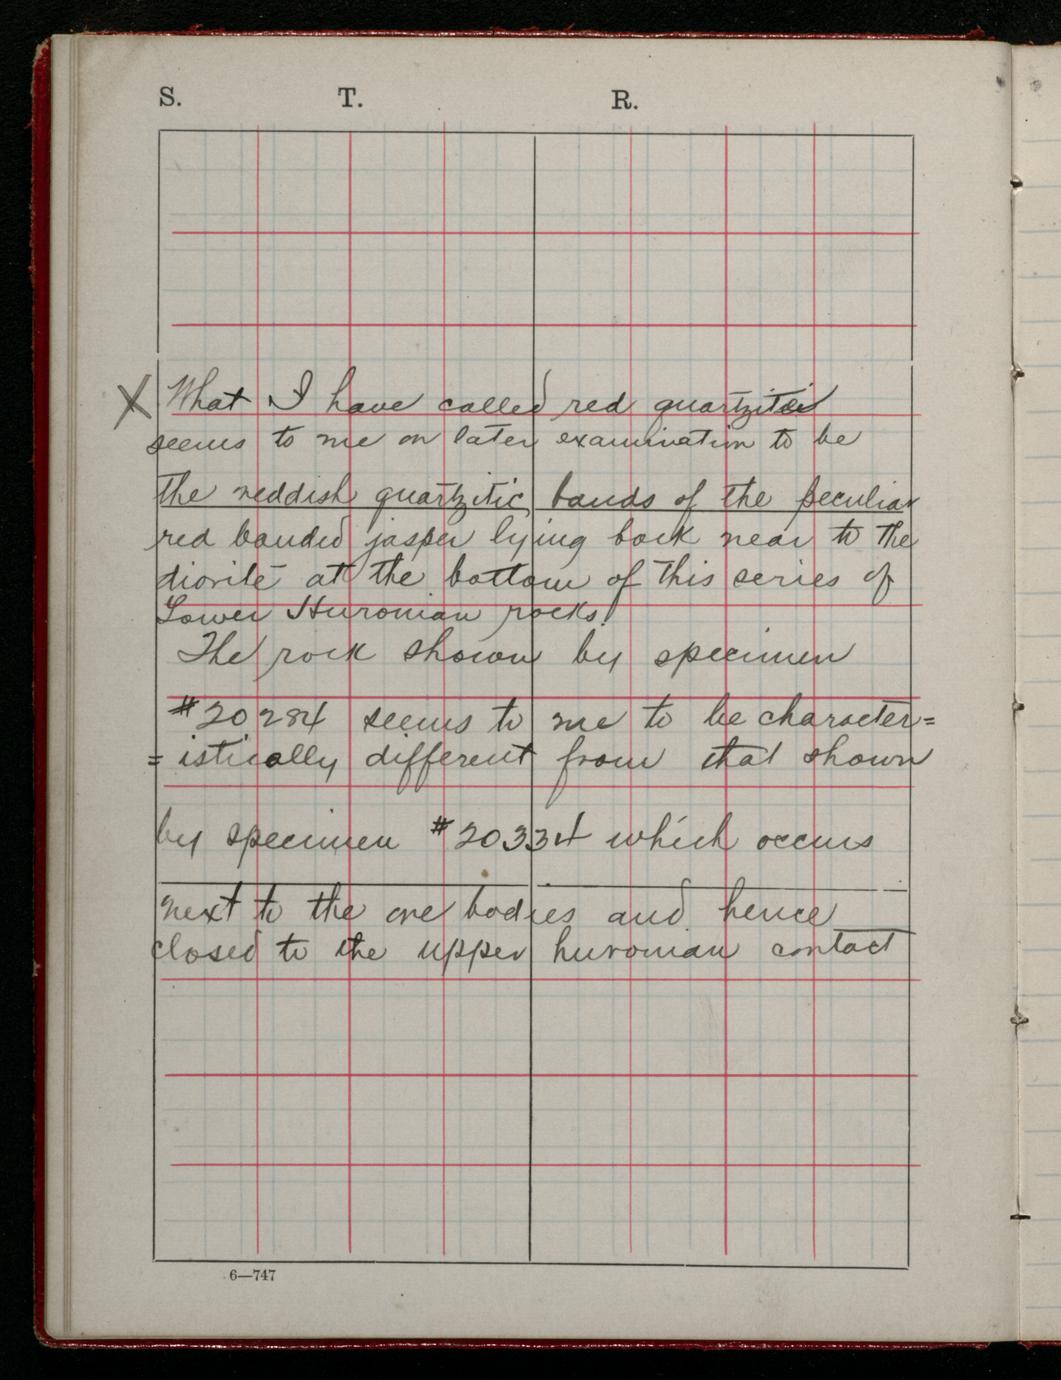 S. T. R.
X What I have called red quartzite
seems to me on later examination to be
the reddish quartzitic bands of the peculiar
red banded jasper lying back near to the
diorite at the bottom of this series of
Lower Huronian rocks.
The rock shown by specimen
#20284 seems to me to be character=
=istically different from that shown
by specimen #20334 which occurs
next to the ore bodies and hence
closed to the upper huronian contact
6—747